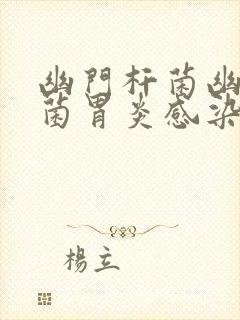 幽門杆菌幽
菌胃炎感染
楊立